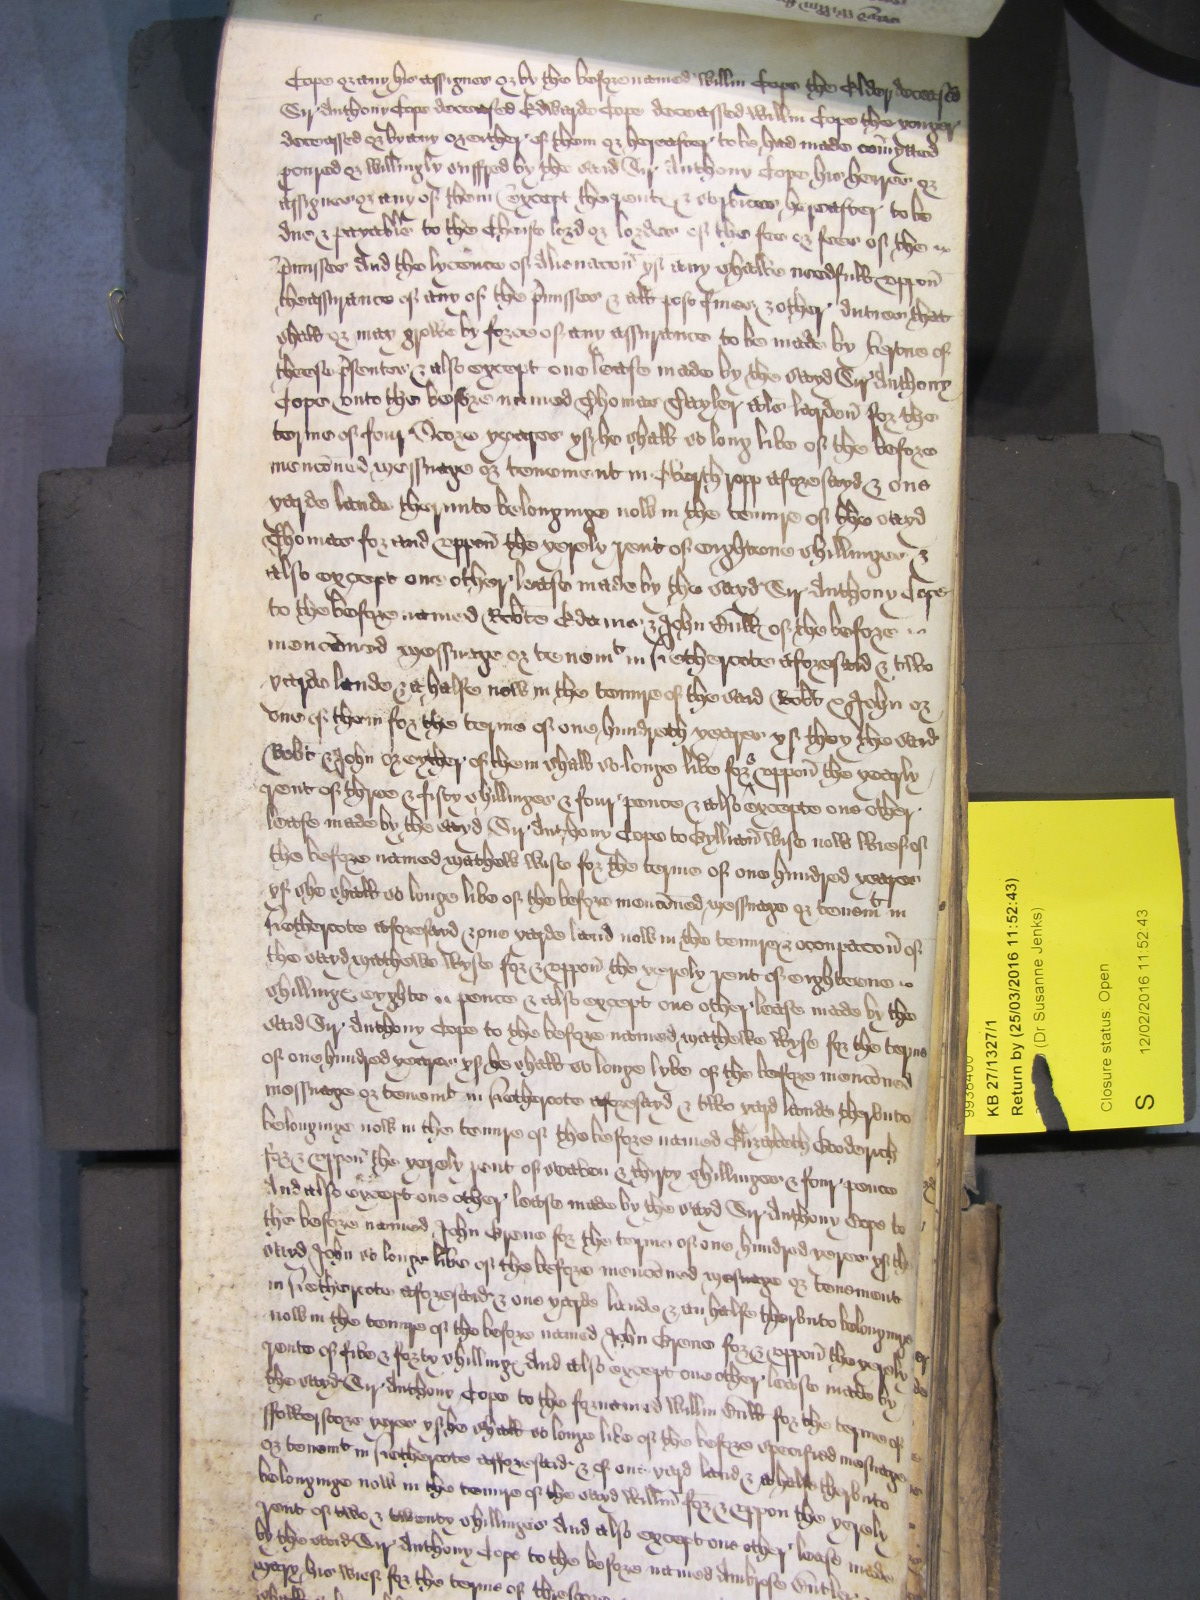 Cope or any his assignes or by the before named Willm Cope the Elder deceased
Sir Anthony Cope deceassed Edwarde Cope deceassed Willm Cope the yonger
deceassed or by any or either of them or hereafter to be had made comytted
or willingly suffred by the said Sir Anthony Cope his heires or
assignes or any of them except the rente & services hereafter to be
due & payable to the Cheife lord or lordes of the fee or fees of the
pmisses And the lycence of Alienacon yf any shalbe needfull uppon
thassurance of any of the pmisses & all post fines & other duties that
shall or may growe by force of any assurance to be made by vertue of
theese psentes & also except one lease made by the sayd Sir Anthony
Cope unto the before named Thomas Tayler als for the
terme of four Score yeares yf he shall so long live of the before
menconed messuage or tenement in aforesayd & one
yarde lande therunto belonginge now in the tenure of the sayd
Thomas for and uppon the yerely rent of eightene shillinges &
also except one other lease made by the sayd Sir Anthony Cope
to the before named Robte & John Bull of the before
menconed messuage or tenemt in Nethercote aforesaid & two
yarde lande & a halfe now in the tenure of the said Robt & John or
one of them for the terme of one hundreth yeares yf they the said
Robt & John or eyther of them shall so longe live for & uppon the yearly
rent of three & fifty shillinges & four pence & also excepte one other
lease made by the sayd Sir Anthony Cope to Wise now wief of
the before named Mathew Wise for the terme of one hundred yeares
yf she shall so longe live of the before menconed messuage or tenemt in
Nethercote aforesaid & one yarde land now in the tenure & occupacon of
the sayd Mathewe Wyse for & uppon the yerely rent of eightene
shillinge eyghte pence & also except one other lease made by the
said Sir Anthony Cope to the before named Mathewe Wyse for the terme
of one hundred yeares yf he shall so longe lyve of the before menconed
messuage or tenemt in Nethercote aforesayd & two yard lande therunto
belonginge now in the tenure of the before named Elizabeth Gooderich
for & uppon the yerely rent of seaven & thirty shillinges & four pence
And also except one other lease made by the sayd Sir Anthony Cope to
the before named John Grene for the terme of one hundred yeres yf the
sayd John so longe live of the before menconed mesuage or tenement
in Nethercote aforesaid & one yarde lande & an halfe therunto belonginge
now in the tenure of the before named John Grene for & uppon the yerely
rente of five & forty shillinge And also except one other lease made by
the sayd Sir Anthony Cope to the fornamed Willm Bull for the terme of
ffowerscore yeres yf he shall so longe live of the before specified mesuage
or tenemt in Nethercote afforesaid & of one yard land & a halfe therunto
belonginge now in the tenure of the sayd Willm for & uppon the yerely
rent of two & twenty shillinges And also except one other lease made
by the said Sir Anthony Cope to the before named Ambrose Butler
Mary his wief for the terme of threscore
KB 27/1327/1
Return by (25/03/2016 11:52:43)
(Dr Susanne Jenks)
Closure status: Open
S 12/02/2016 11:52:43